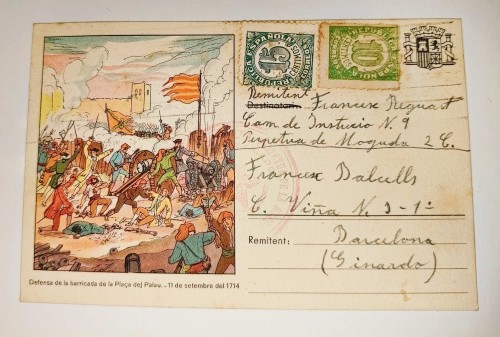 REPUBLICA ESPAÑOLA
15 CENTIMOS
REPUBLICA ESPAÑOLA
10
Remitent
Destinatari: Francesc Reguart
Cam de Instucio N. 9
Perpetua de Moguda 2 C.
Francesc Balcells
C. Viña N. 3 - 1º
Remitent: Barcelona
(Ginardo)
Defensa de la barricada de la Plaça del Palau. - 11 de setembre del 1714